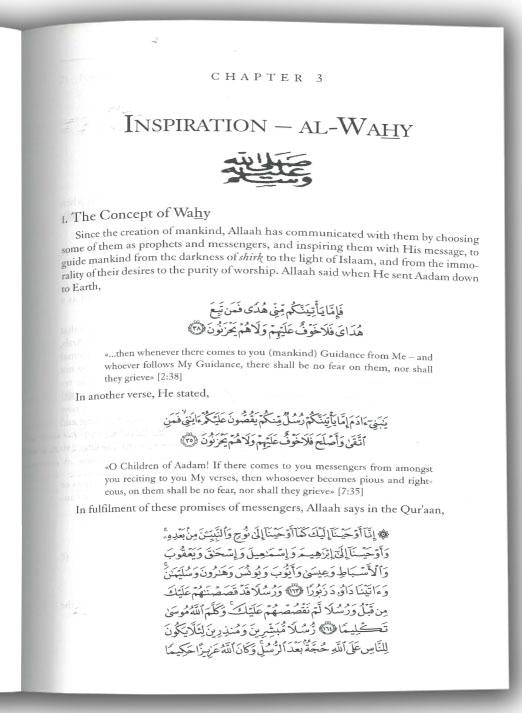 CHAPTER 3
INSPIRATION – AL-WAHY
صلى الله
عليه
وسلم
1. The Concept of Wahy
Since the creation of mankind, Allaah has communicated with them by choosing
some of them as prophets and messengers, and inspiring them with His message, to
guide mankind from the darkness of shirk to the light of Islaam, and from the immo-
rality of their desires to the purity of worship. Allaah said when He sent Aadam down
to Earth,
فَإِمَّا يَأْتِيَنَّكُم مِّنِّي هُدًى فَمَن تَبِعَ
هُدَايَ فَلَا خَوْفٌ عَلَيْهِمْ وَلَا هُمْ يَحْزَنُونَ ٣٨
«...then whenever there comes to you (mankind) Guidance from Me – and
whoever follows My Guidance, there shall be no fear on them, nor shall
they grieve» [2:38]
In another verse, He stated,
يَبَنِيٓ ءَادَمَ إِمَّا يَأْتِيَنَّكُمْ رُسُلٌ مِّنكُمْ يَقُصُّونَ عَلَيْكُمْ ءَايَتِي فَمَنِ
اتَّقَى وَأَصْلَحَ فَلَا خَوْفٌ عَلَيْهِمْ وَلَا هُمْ يَحْزَنُونَ ٣٥
«O Children of Aadam! If there comes to you messengers from amongst
you reciting to you My verses, then whosoever becomes pious and right-
eous, on them shall be no fear, nor shall they grieve» [7:35]
In fulfilment of these promises of messengers, Allaah says in the Qur'aan,
إِنَّا أَوْحَيْنَا إِلَيْكَ كَمَا أَوْحَيْنَا إِلَى نُوحٍ وَالنَّبِيِّينَ مِن بَعْدِهِ
وَأَوْحَيْنَا إِلَى إِبْرَهِيمَ وَإِسْمَعِيلَ وَإِسْحَقَ وَيَعْقُوبَ
وَالْأَسْبَاطِ وَعِيسَى وَأَيُّوبَ وَيُونُسَ وَهَرُونَ وَسُلَيْمَنَ
وَءَاتَيْنَا دَاوُدَ زَبُورًا ١٦٣ وَرُسُلًا قَدْ قَصَصْنَهُمْ عَلَيْكَ
مِن قَبْلُ وَرُسُلًا لَّمْ نَقْصُصْهُمْ عَلَيْكَ وَكَلَّمَ اللَّهُ مُوسَى
تَكْلِيمًا ١٦٤ رُّسُلًا مُّبَشِّرِينَ وَمُنذِرِينَ لِئَلَّا يَكُونَ
لِلنَّاسِ عَلَى اللَّهِ حُجَّةٌ بَعْدَ الرُّسُلِ وَكَانَ اللَّهُ عَزِيزًا حَكِيمًا